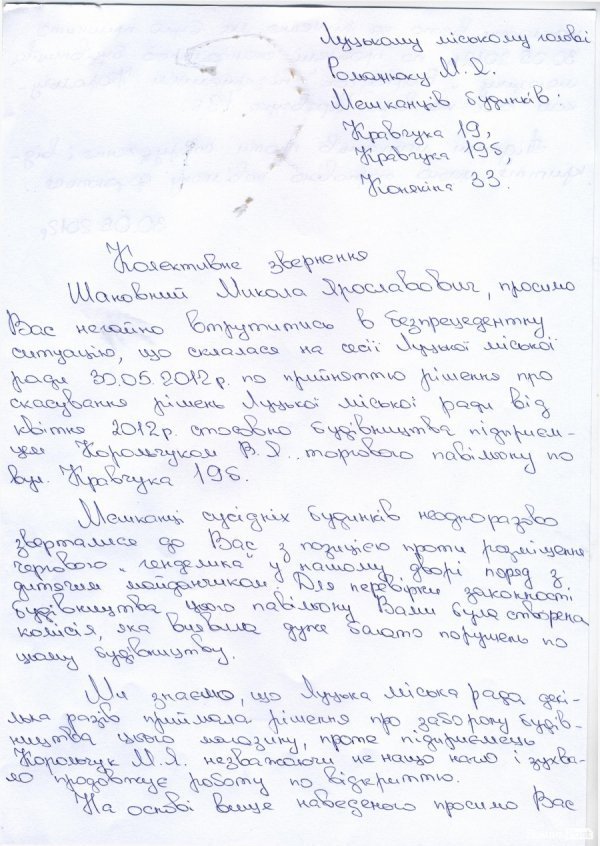 Луцькому міському голові
Романюку М. Я.
Мешканців будинків:
Кравчука 19,
Кравчука 19б,
Конякіна 33.
Колективне звернення
Шановний Микола Ярославович, просимо
Вас негайно втрутитись в безпрецедентну
ситуацію, що склалася на сесії Луцької міської
ради 30.05.2012р. по прийняттю рішення про
скасування рішень Луцької міської ради від
квітня 2012р. стосовно будівництва підприєм-
цем Корольчуком В. Я. торгового павільону по
вул. Кравчука 19б.
Мешканці сусідніх будинків неодноразово
зверталися до Вас з позицією проти розміщення
чергового „генделика" у нашому дворі поряд з
дитячим майданчиком. Для перевірки законності
будівництва цього павільону Вами була створена
комісія, яка виявила дуже багато порушень по
цьому будівництву.
Ми знаємо, що Луцька міська рада декі-
лька разів приймала рішення про заборону будів-
ництва цього магазину, проте підприємець
Корольчук М.Я. незважаючи не нащо нагло і зухва-
ло продовжує роботу по відкриттю.
На основі вище наведеного просимо Вас